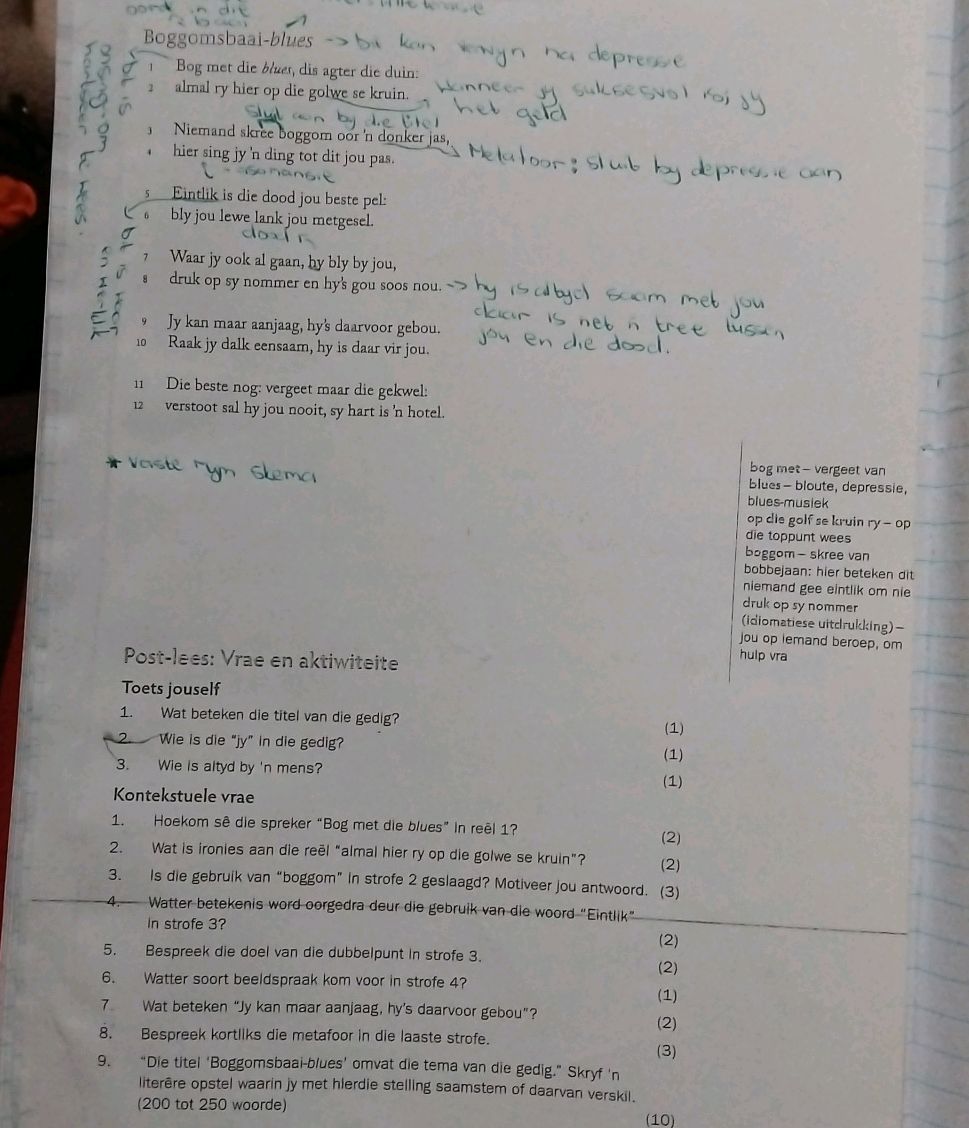 oord in dit
Boggomsbaai-blues -> dit kan verwyn na depressie
1 Bog met die blues, dis agter die duin:
2 almal ry hier op die golwe se kruin.
Wanneer jy suksesvol is, jy
het geld
sluit aan by die titel
3 Niemand skree boggom oor 'n donker jas,
4 hier sing jy 'n ding tot dit jou pas.
Metafoor: sluit by depressie aan
5 Eintlik is die dood jou beste pel:
6 bly jou lewe lank jou metgesel.
7 Waar jy ook al gaan, hy bly by jou,
8 druk op sy nommer en hy's gou soos nou.
-> hy is altyd saam met jou
daar is net 'n tree tussen
jou en die dood.
9 Jy kan maar aanjaag, hy's daarvoor gebou.
10 Raak jy dalk eensaam, hy is daar vir jou.
11 Die beste nog: vergeet maar die gekwel:
12 verstoot sal hy jou nooit, sy hart is 'n hotel.
* Vaste rym skema
bog met – vergeet van
blues – bloute, depressie,
blues-musiek
op die golf se kruin ry – op
die toppunt wees
boggom – skree van
bobbejaan: hier beteken dit
niemand gee eintlik om nie
druk op sy nommer
(idiomatiese uitdrukking) –
jou op iemand beroep, om
hulp vra
Post-lees: Vrae en aktiwiteite
Toets jouself
1. Wat beteken die titel van die gedig? (1)
2. Wie is die "jy" in die gedig? (1)
3. Wie is altyd by 'n mens? (1)
Kontekstuele vrae
1. Hoekom sê die spreker "Bog met die blues" in reël 1? (2)
2. Wat is ironies aan die reël "almal hier ry op die golwe se kruin"? (2)
3. Is die gebruik van "boggom" in strofe 2 geslaagd? Motiveer jou antwoord. (3)
4. Watter betekenis word oorgedra deur die gebruik van die woord "Eintlik"
in strofe 3? (2)
5. Bespreek die doel van die dubbelpunt in strofe 3. (2)
6. Watter soort beeldspraak kom voor in strofe 4? (1)
7 Wat beteken "Jy kan maar aanjaag, hy's daarvoor gebou"? (2)
8. Bespreek kortliks die metafoor in die laaste strofe. (3)
9. "Die titel 'Boggomsbaai-blues' omvat die tema van die gedig." Skryf 'n
literêre opstel waarin jy met hierdie stelling saamstem of daarvan verskil.
(200 tot 250 woorde) (10)